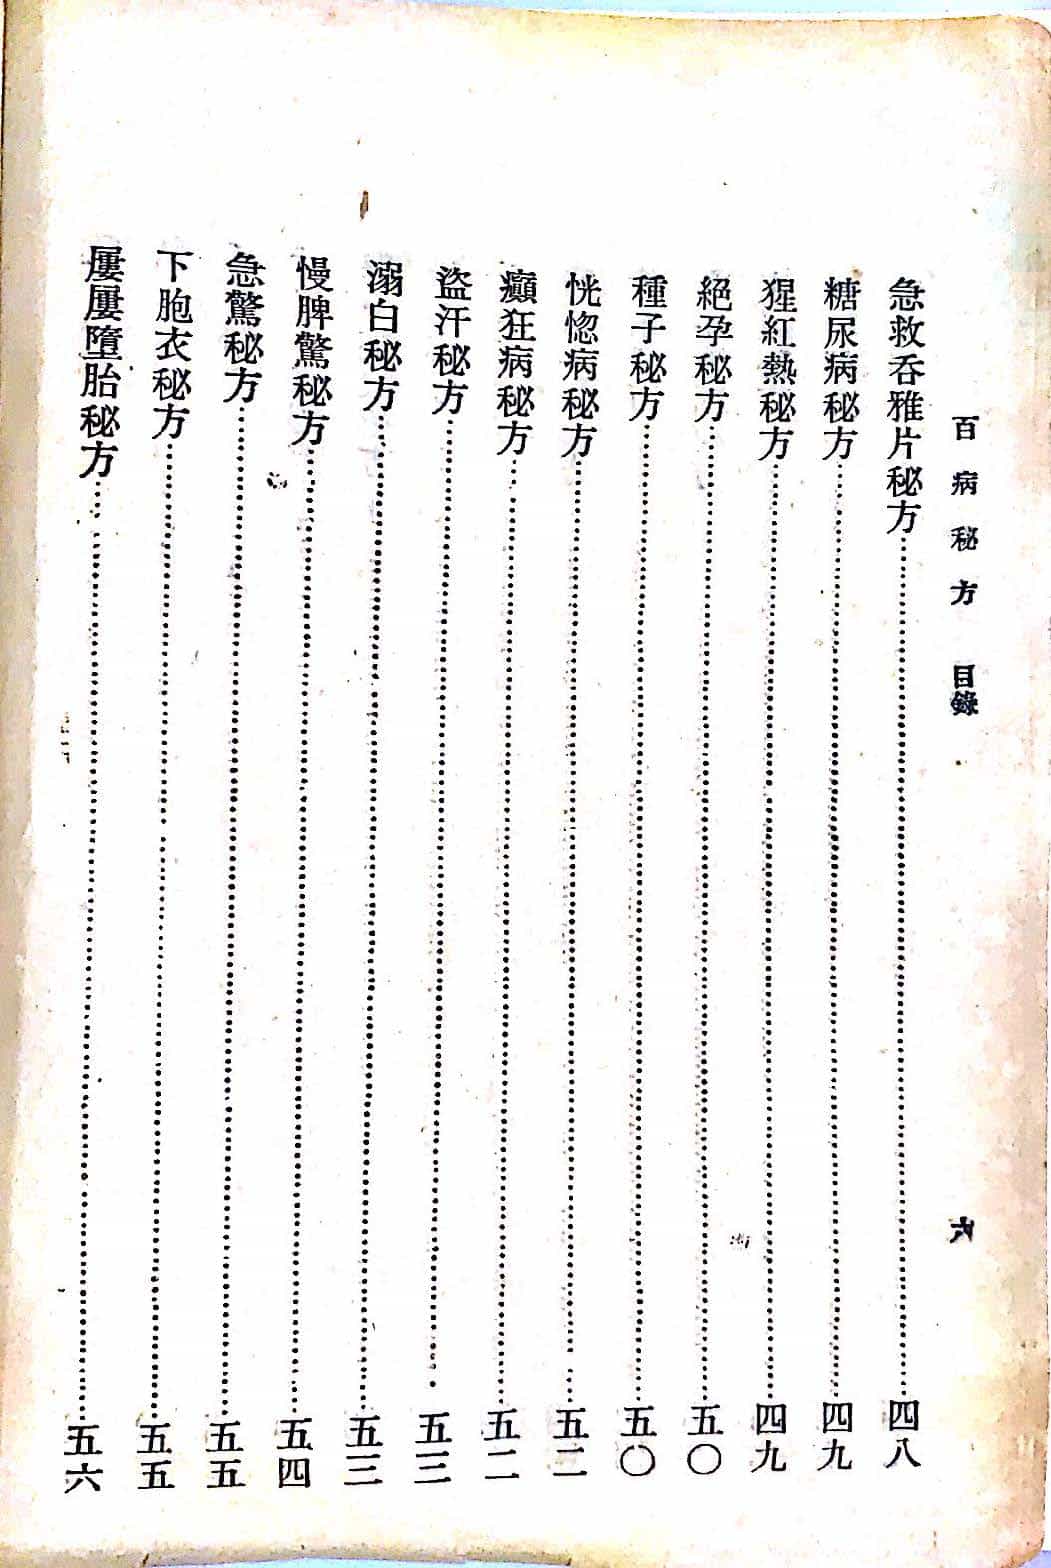 百病秘方 目錄 六
急救吞雅片秘方⋯⋯四八
糖尿病秘方⋯⋯四九
猩紅熱秘方⋯⋯四九
絕孕秘方⋯⋯五〇
種子秘方⋯⋯五〇
恍惚病秘方⋯⋯五二
癲狂病秘方⋯⋯五二
盜汗秘方⋯⋯五三
溺白秘方⋯⋯五三
慢脾驚秘方⋯⋯五四
急驚秘方⋯⋯五五
下胞衣秘方⋯⋯五五
屢屢墮胎秘方⋯⋯五六